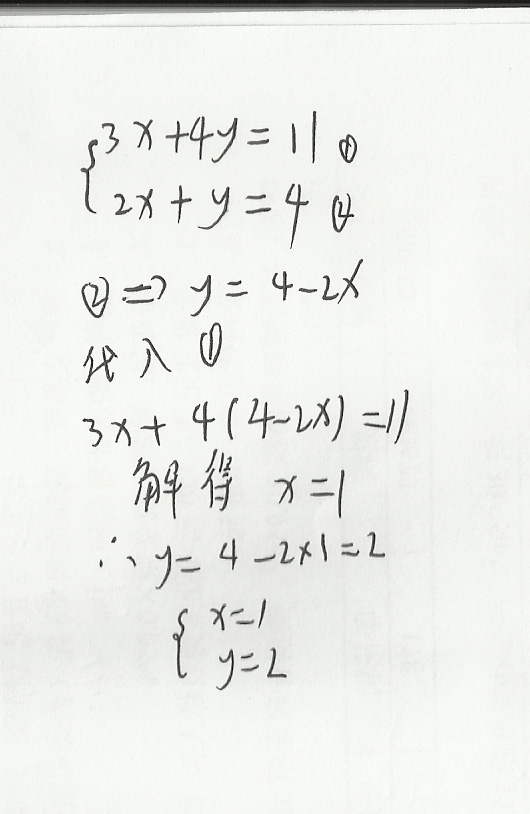 {3x+4y=11 ①
2x+y=4 ②
②⇒y=4-2x
代入①
3x+4(4-2x)=11
解得 x=1
∴y=4-2×1=2
{x=1
y=2